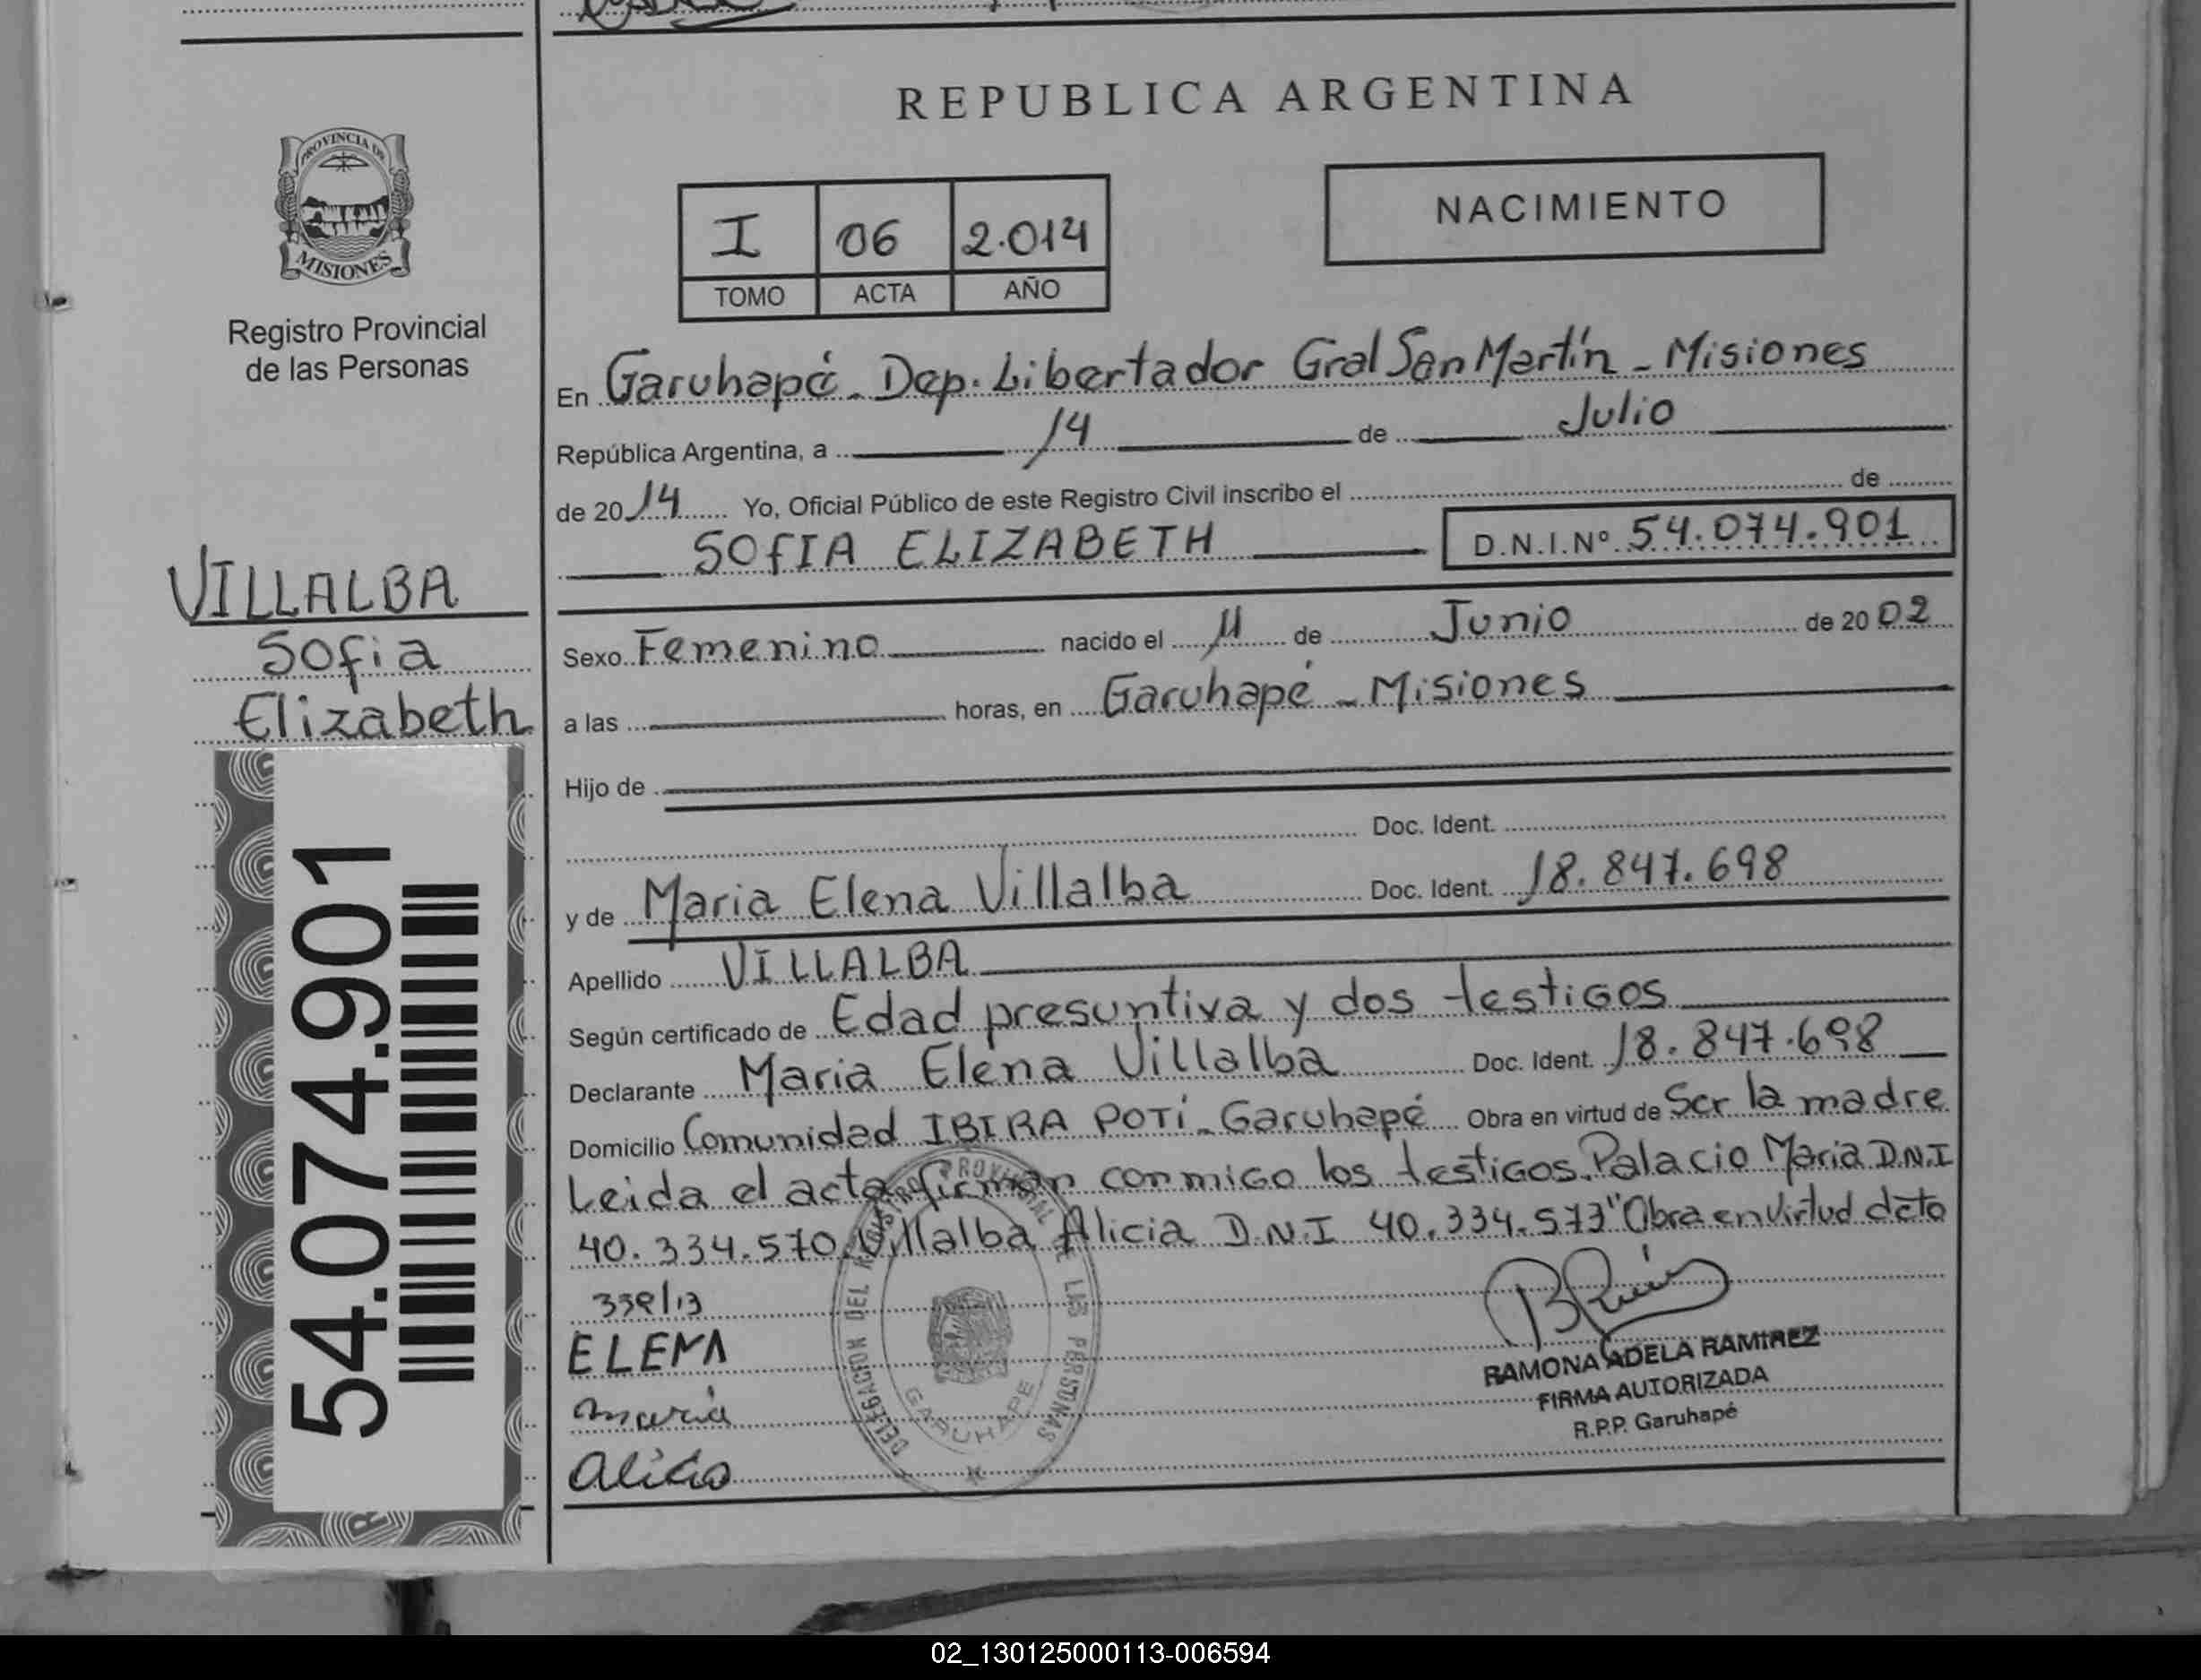 REPUBLICA ARGENTINA
PROVINCIA DE
MISIONES
Registro Provincial
de las Personas
I 06 2.014
TOMO ACTA AÑO
NACIMIENTO
En Garuhapé - Dep. Libertador Gral San Martín - Misiones
República Argentina, a 14 de Julio
de 2014 Yo, Oficial Público de este Registro Civil inscribo el de
SOfIA ELIZABETH D.N.I.Nº 54.074.901
VILLALBA
Sofia
Elizabeth
Sexo Femenino nacido el 11 de Junio de 2002
a las horas, en Garuhapé - Misiones
Hijo de
Doc. Ident.
y de Maria Elena Villalba Doc. Ident. 18.847.698
Apellido VILLALBA
Según certificado de Edad presuntiva y dos testigos
Declarante Maria Elena Villalba Doc. Ident. 18.847.698
Domicilio Comunidad IBIRA POTÍ - Garuhapé Obra en virtud de Ser la madre
Leida el acta firman conmigo los testigos. Palacio Maria D.N.I
40.334.570. Villalba Alicia D.N.I 40.334.573 "Obra en Virtud dcto
339/13
ELENA
maria
alicia
DELEGACION DEL REGISTRO PROVINCIAL DE LAS PERSONAS
GARUHAPE
RAMONA ADELA RAMIREZ
FIRMA AUTORIZADA
R.P.P. Garuhapé
54.074.901
02_130125000113-006594